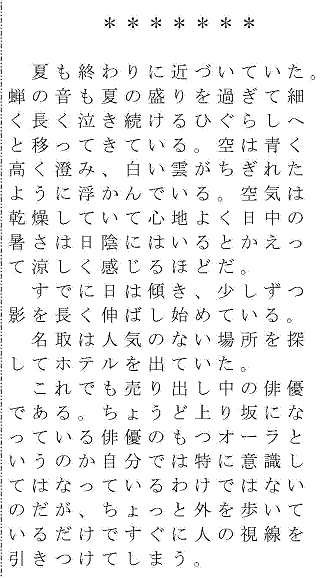 ＊＊＊＊＊＊＊
　夏も終わりに近づいていた。
蝉の音も夏の盛りを過ぎて細
く長く泣き続けるひぐらしへ
と移ってきている。空は青く
高く澄み、白い雲がちぎれた
ように浮かんでいる。空気は
乾燥していて心地よく日中の
暑さは日陰にはいるとかえっ
て涼しく感じるほどだ。
　すでに日は傾き、少しずつ
影を長く伸ばし始めている。
　名取は人気のない場所を探
してホテルを出ていた。
　これでも売り出し中の俳優
である。ちょうど上り坂にな
っている俳優のもつオーラと
いうのか自分では特に意識し
てはなっているわけではない
のだが、ちょっと外を歩いて
いるだけですぐに人の視線を
引きつけてしまう。